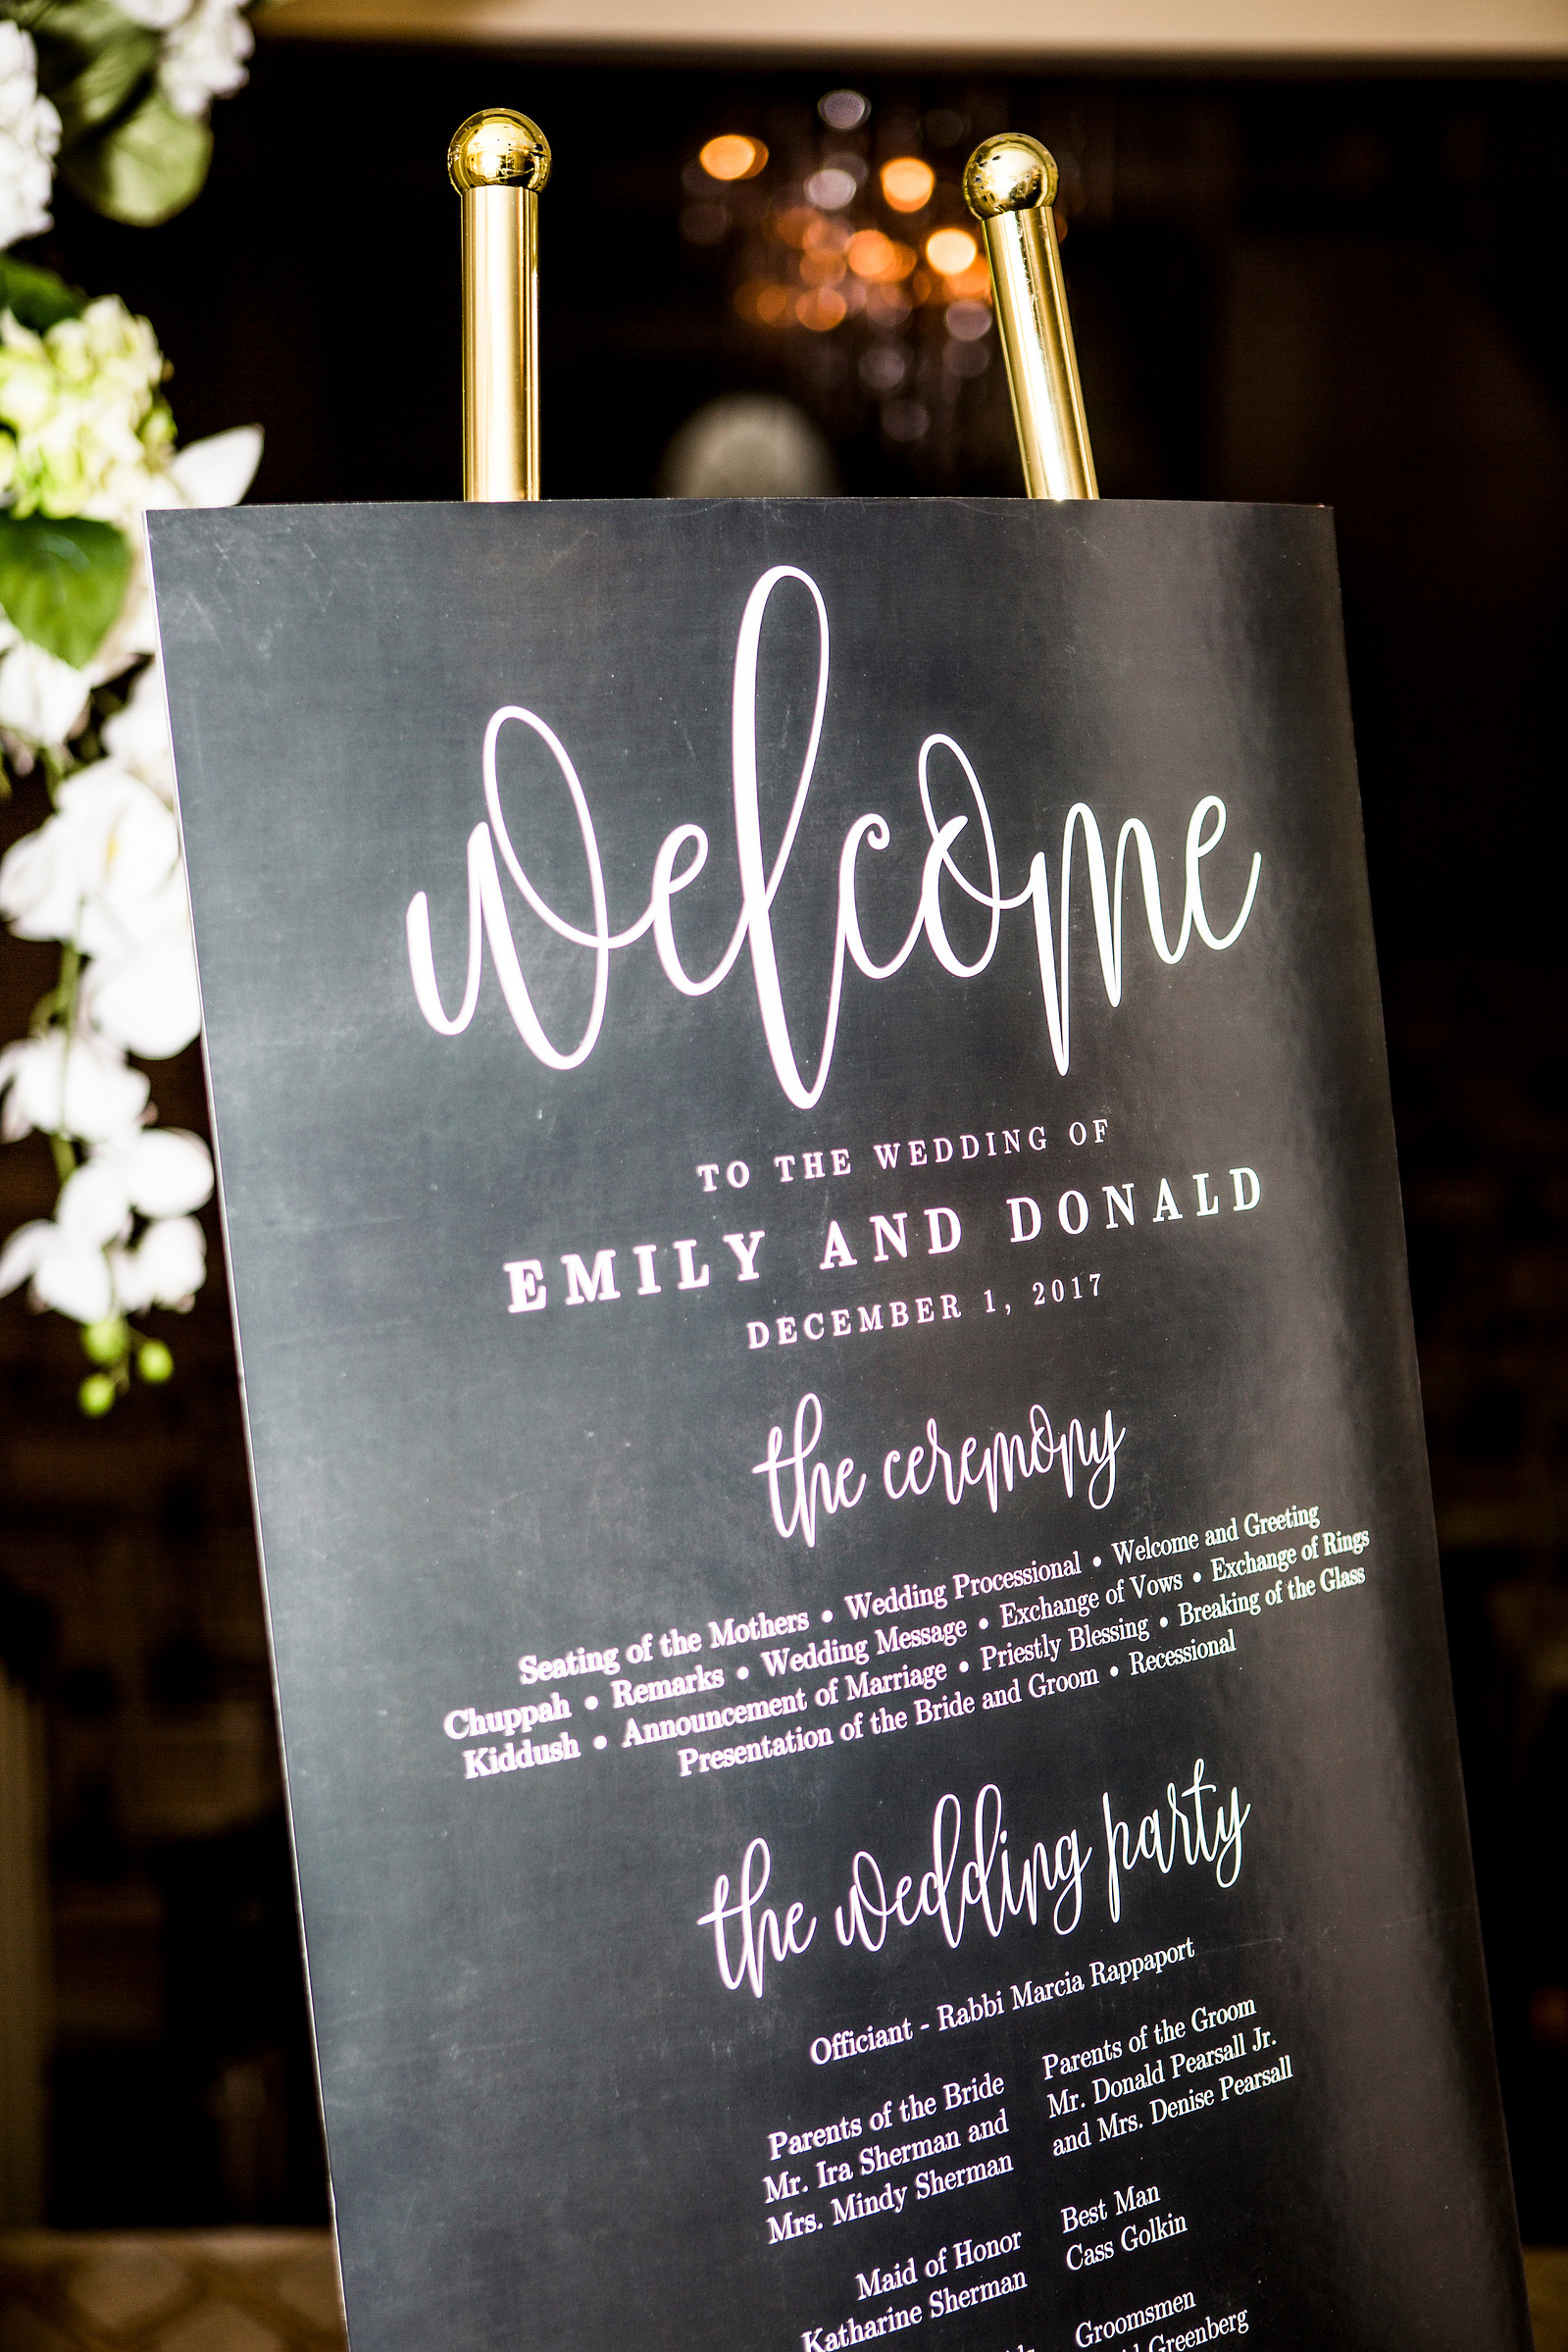 welcome
TO THE WEDDING OF
EMILY AND DONALD
DECEMBER 1, 2017
the ceremony
Seating of the Mothers • Wedding Processional • Welcome and Greeting
Chuppah • Remarks • Wedding Message • Exchange of Vows • Exchange of Rings
Kiddush • Announcement of Marriage • Priestly Blessing • Breaking of the Glass
Presentation of the Bride and Groom • Recessional
the wedding party
Officiant - Rabbi Marcia Rappaport
Parents of the Bride
Mr. Ira Sherman and
Mrs. Mindy Sherman
Parents of the Groom
Mr. Donald Pearsall Jr.
and Mrs. Denise Pearsall
Maid of Honor
Katharine Sherman
Best Man
Cass Golkin
Groomsmen
Greenberg